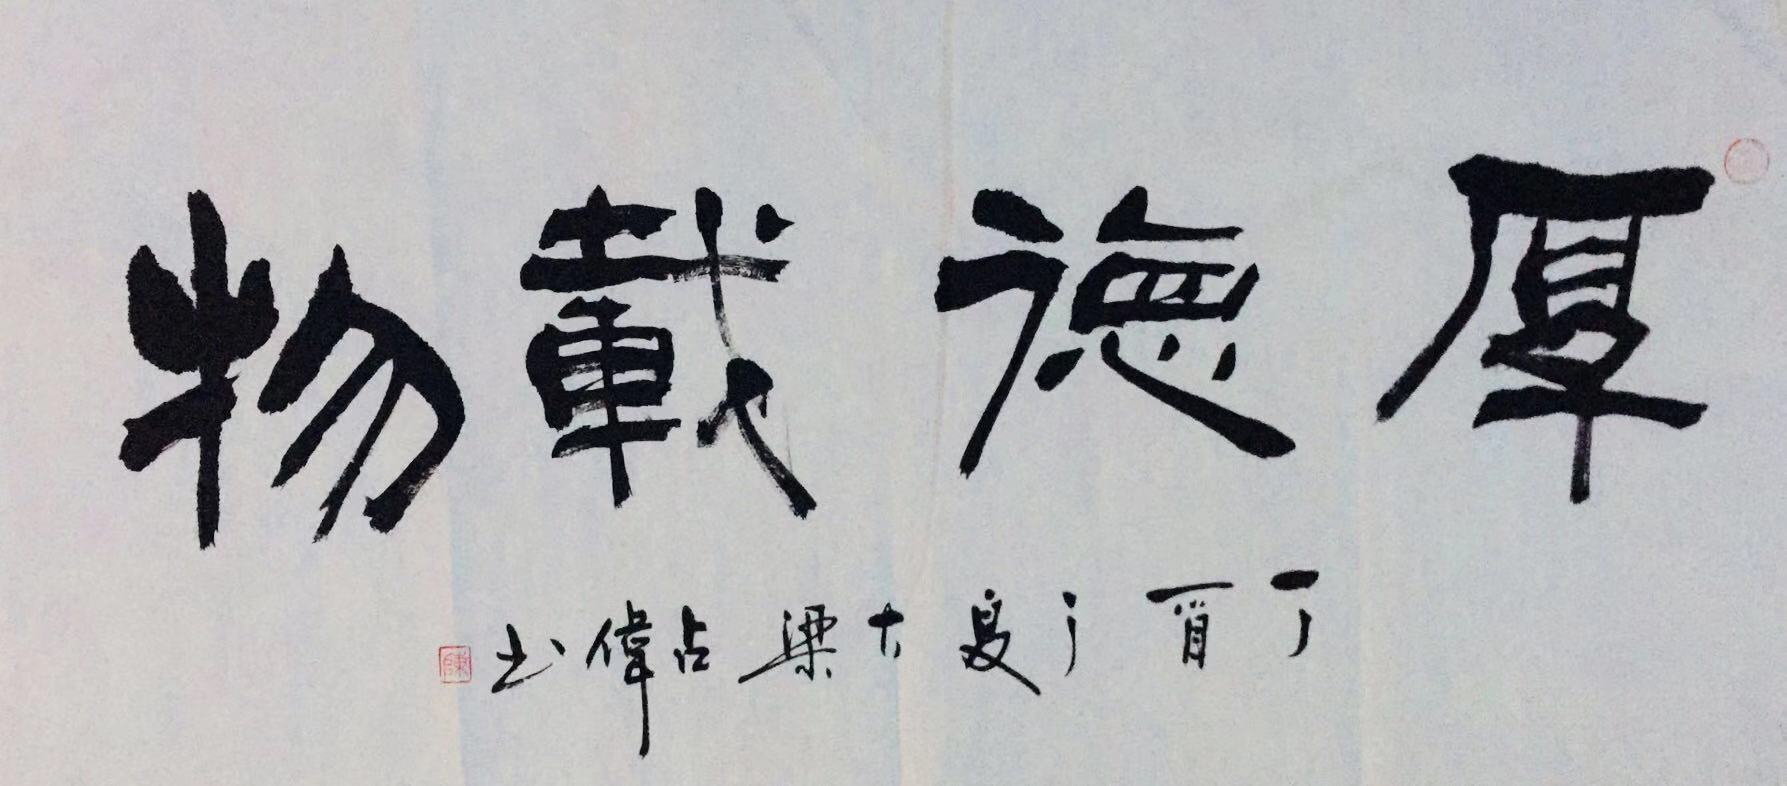 厚德載物
丁酉之夏大梁占偉書